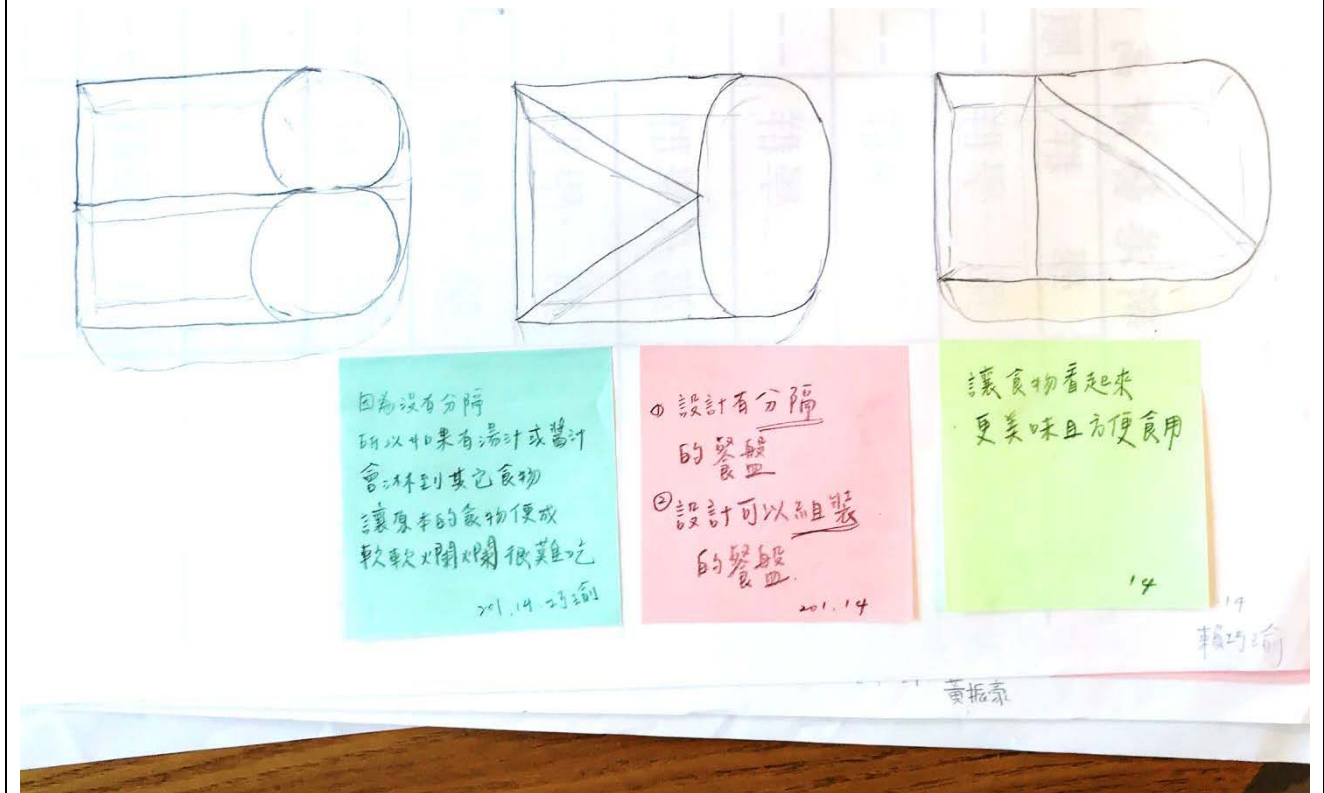 因為沒有分隔
所以如果有湯汁或醬汁
會淋到其它食物
讓原本的食物便成
軟軟爛爛很難吃
201.14.巧瑜
① 設計有分隔
的餐盤
② 設計可以組裝
的餐盤.
201.14
讓食物看起來
更美味且方便食用
14
14
賴巧瑜
黃振豪